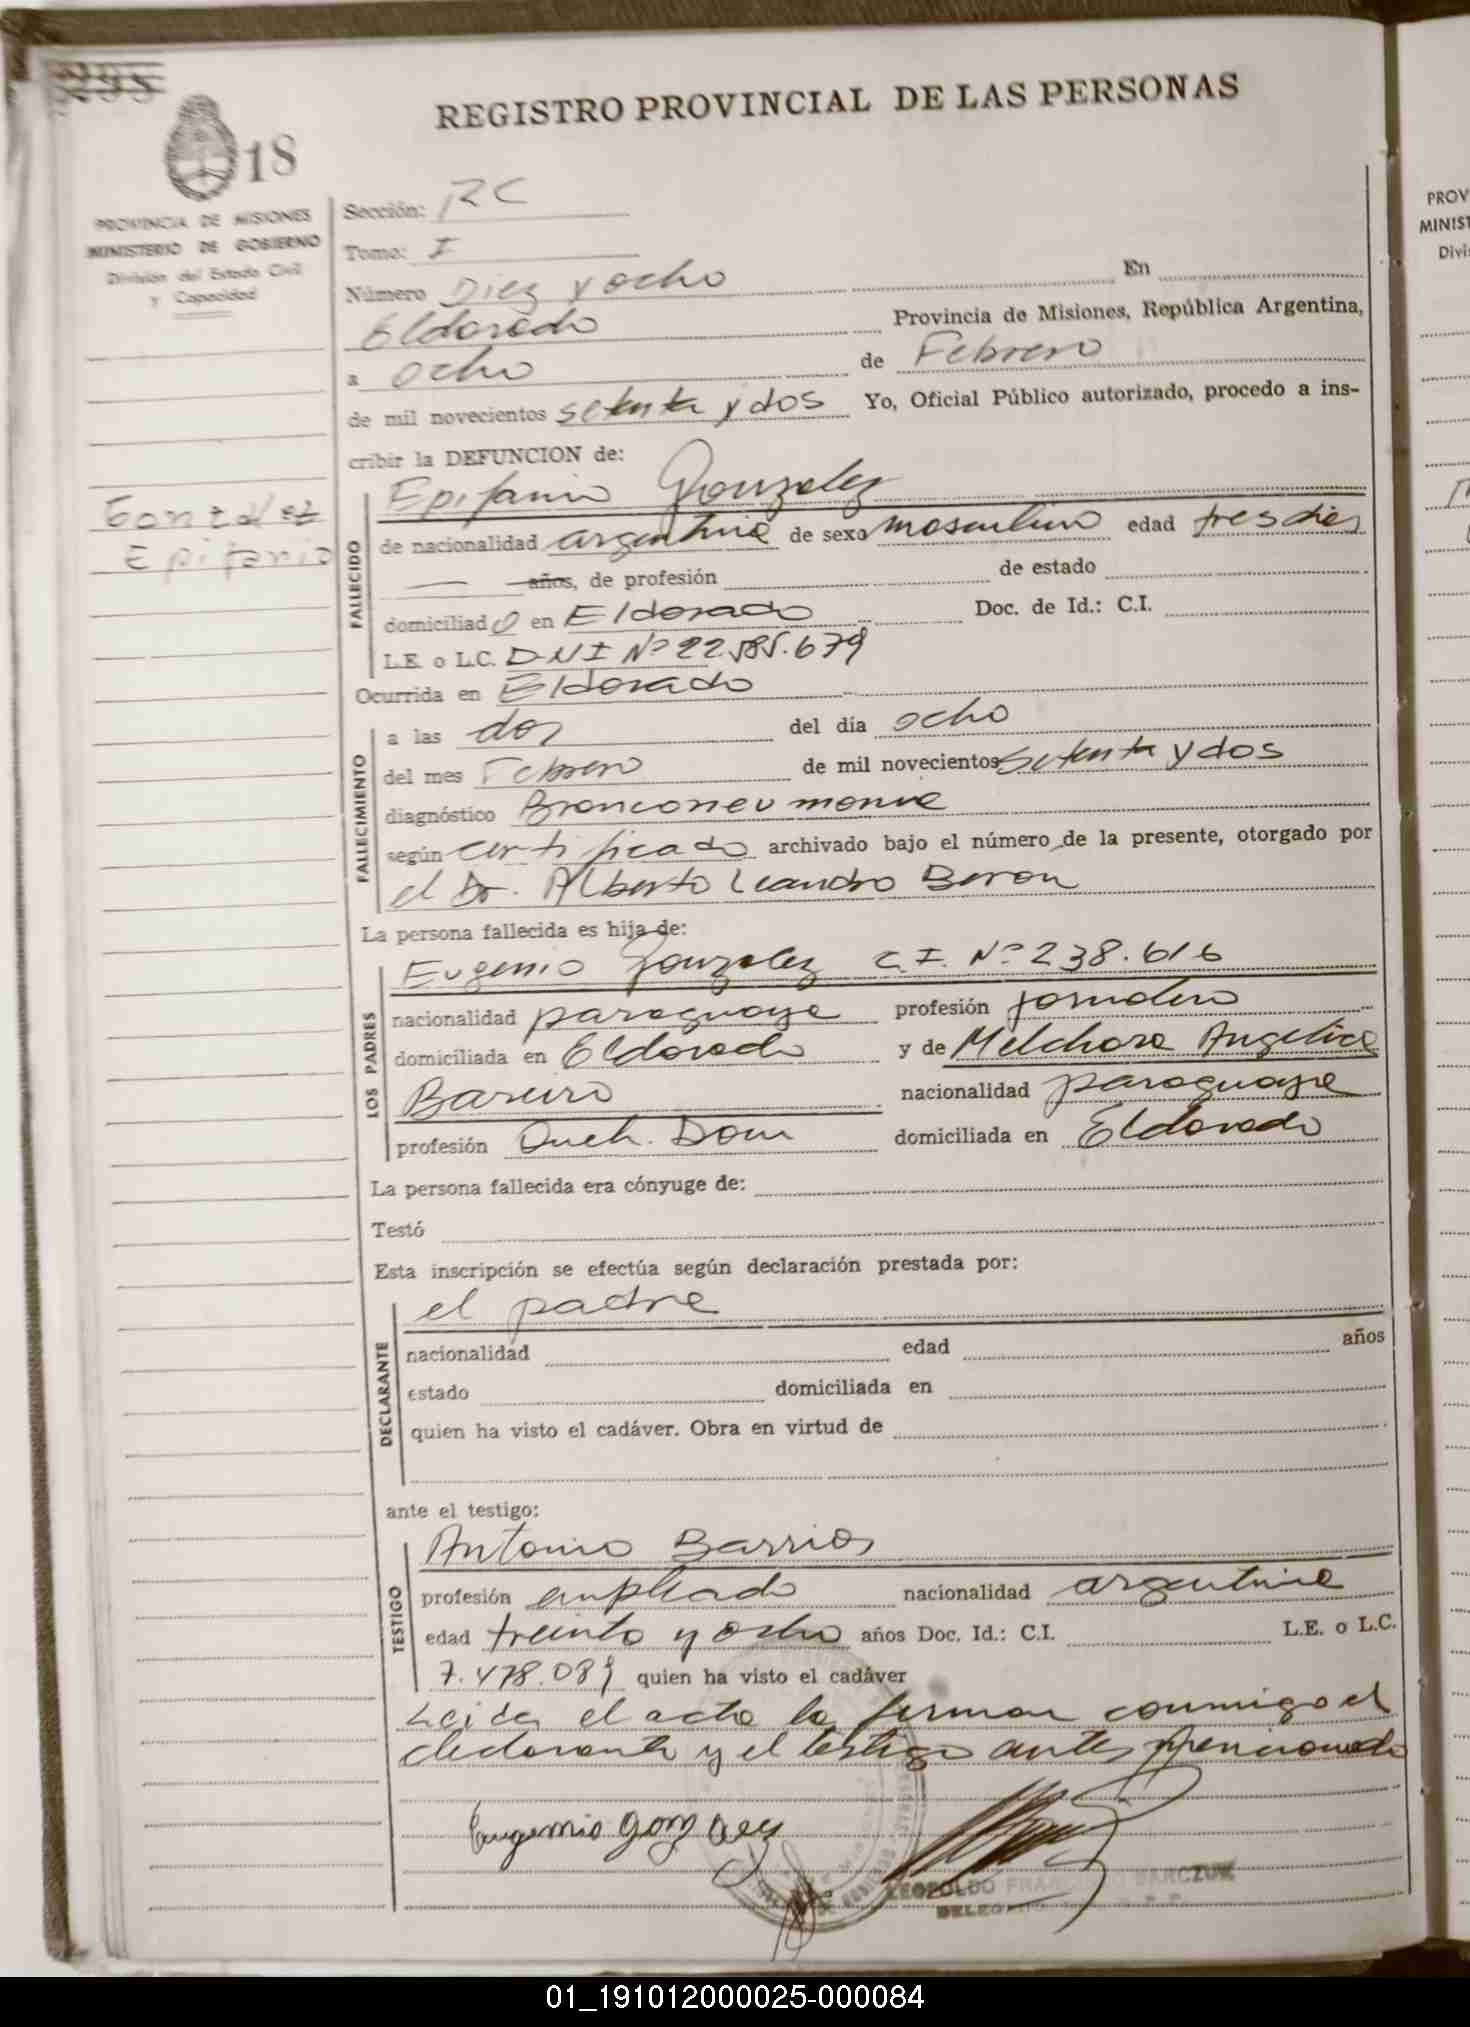 295
18
REGISTRO PROVINCIAL DE LAS PERSONAS
PROVINCIA DE MISIONES
MINISTERIO DE GOBIERNO
División del Estado Civil
y Capacidad
Sección: RC
Tomo: I
Número Diez y ocho En
Eldorado Provincia de Misiones, República Argentina,
a ocho de Febrero
de mil novecientos setenta y dos Yo, Oficial Público autorizado, procedo a ins-
cribir la DEFUNCION de:
Gonzalez
Epifanio
FALLECIDO
Epifanio Gonzalez
de nacionalidad argentina de sexo masculino edad tres dies
— años, de profesión de estado
domiciliado en Eldorado Doc. de Id.: C.I.
L.E. o L.C. D.N.I Nº 22.585.679
Ocurrida en Eldorado
FALLECIMIENTO
a las dos del día ocho
del mes Febrero de mil novecientos setenta y dos
diagnóstico Bronconeumonia
según certificado archivado bajo el número de la presente, otorgado por
el Dr. Alberto Leandro Beron
La persona fallecida es hija de:
LOS PADRES
Eugenio Gonzalez C.I. Nº 238.616
nacionalidad paraguaya profesión jornalero
domiciliada en Eldorado y de Melchora Angelica
Bareiro nacionalidad paraguaya
profesión Queh. Dom domiciliada en Eldorado
La persona fallecida era cónyuge de:
Testó
Esta inscripción se efectúa según declaración prestada por:
DECLARANTE
el padre
nacionalidad edad años
estado domiciliada en
quien ha visto el cadáver. Obra en virtud de
ante el testigo:
TESTIGO
Antonio Barrios
profesión empleado nacionalidad argentina
edad treinta y ocho años Doc. Id.: C.I. L.E. o L.C.
7.478.089 quien ha visto el cadáver
Leida el acta la firman conmigo el
declarante y el testigo antes mencionado
Eugenio Gonzalez
LEOPOLDO FRANCISCO BARCZUK
PROV
MINIST
Divi
01_191012000025-000084